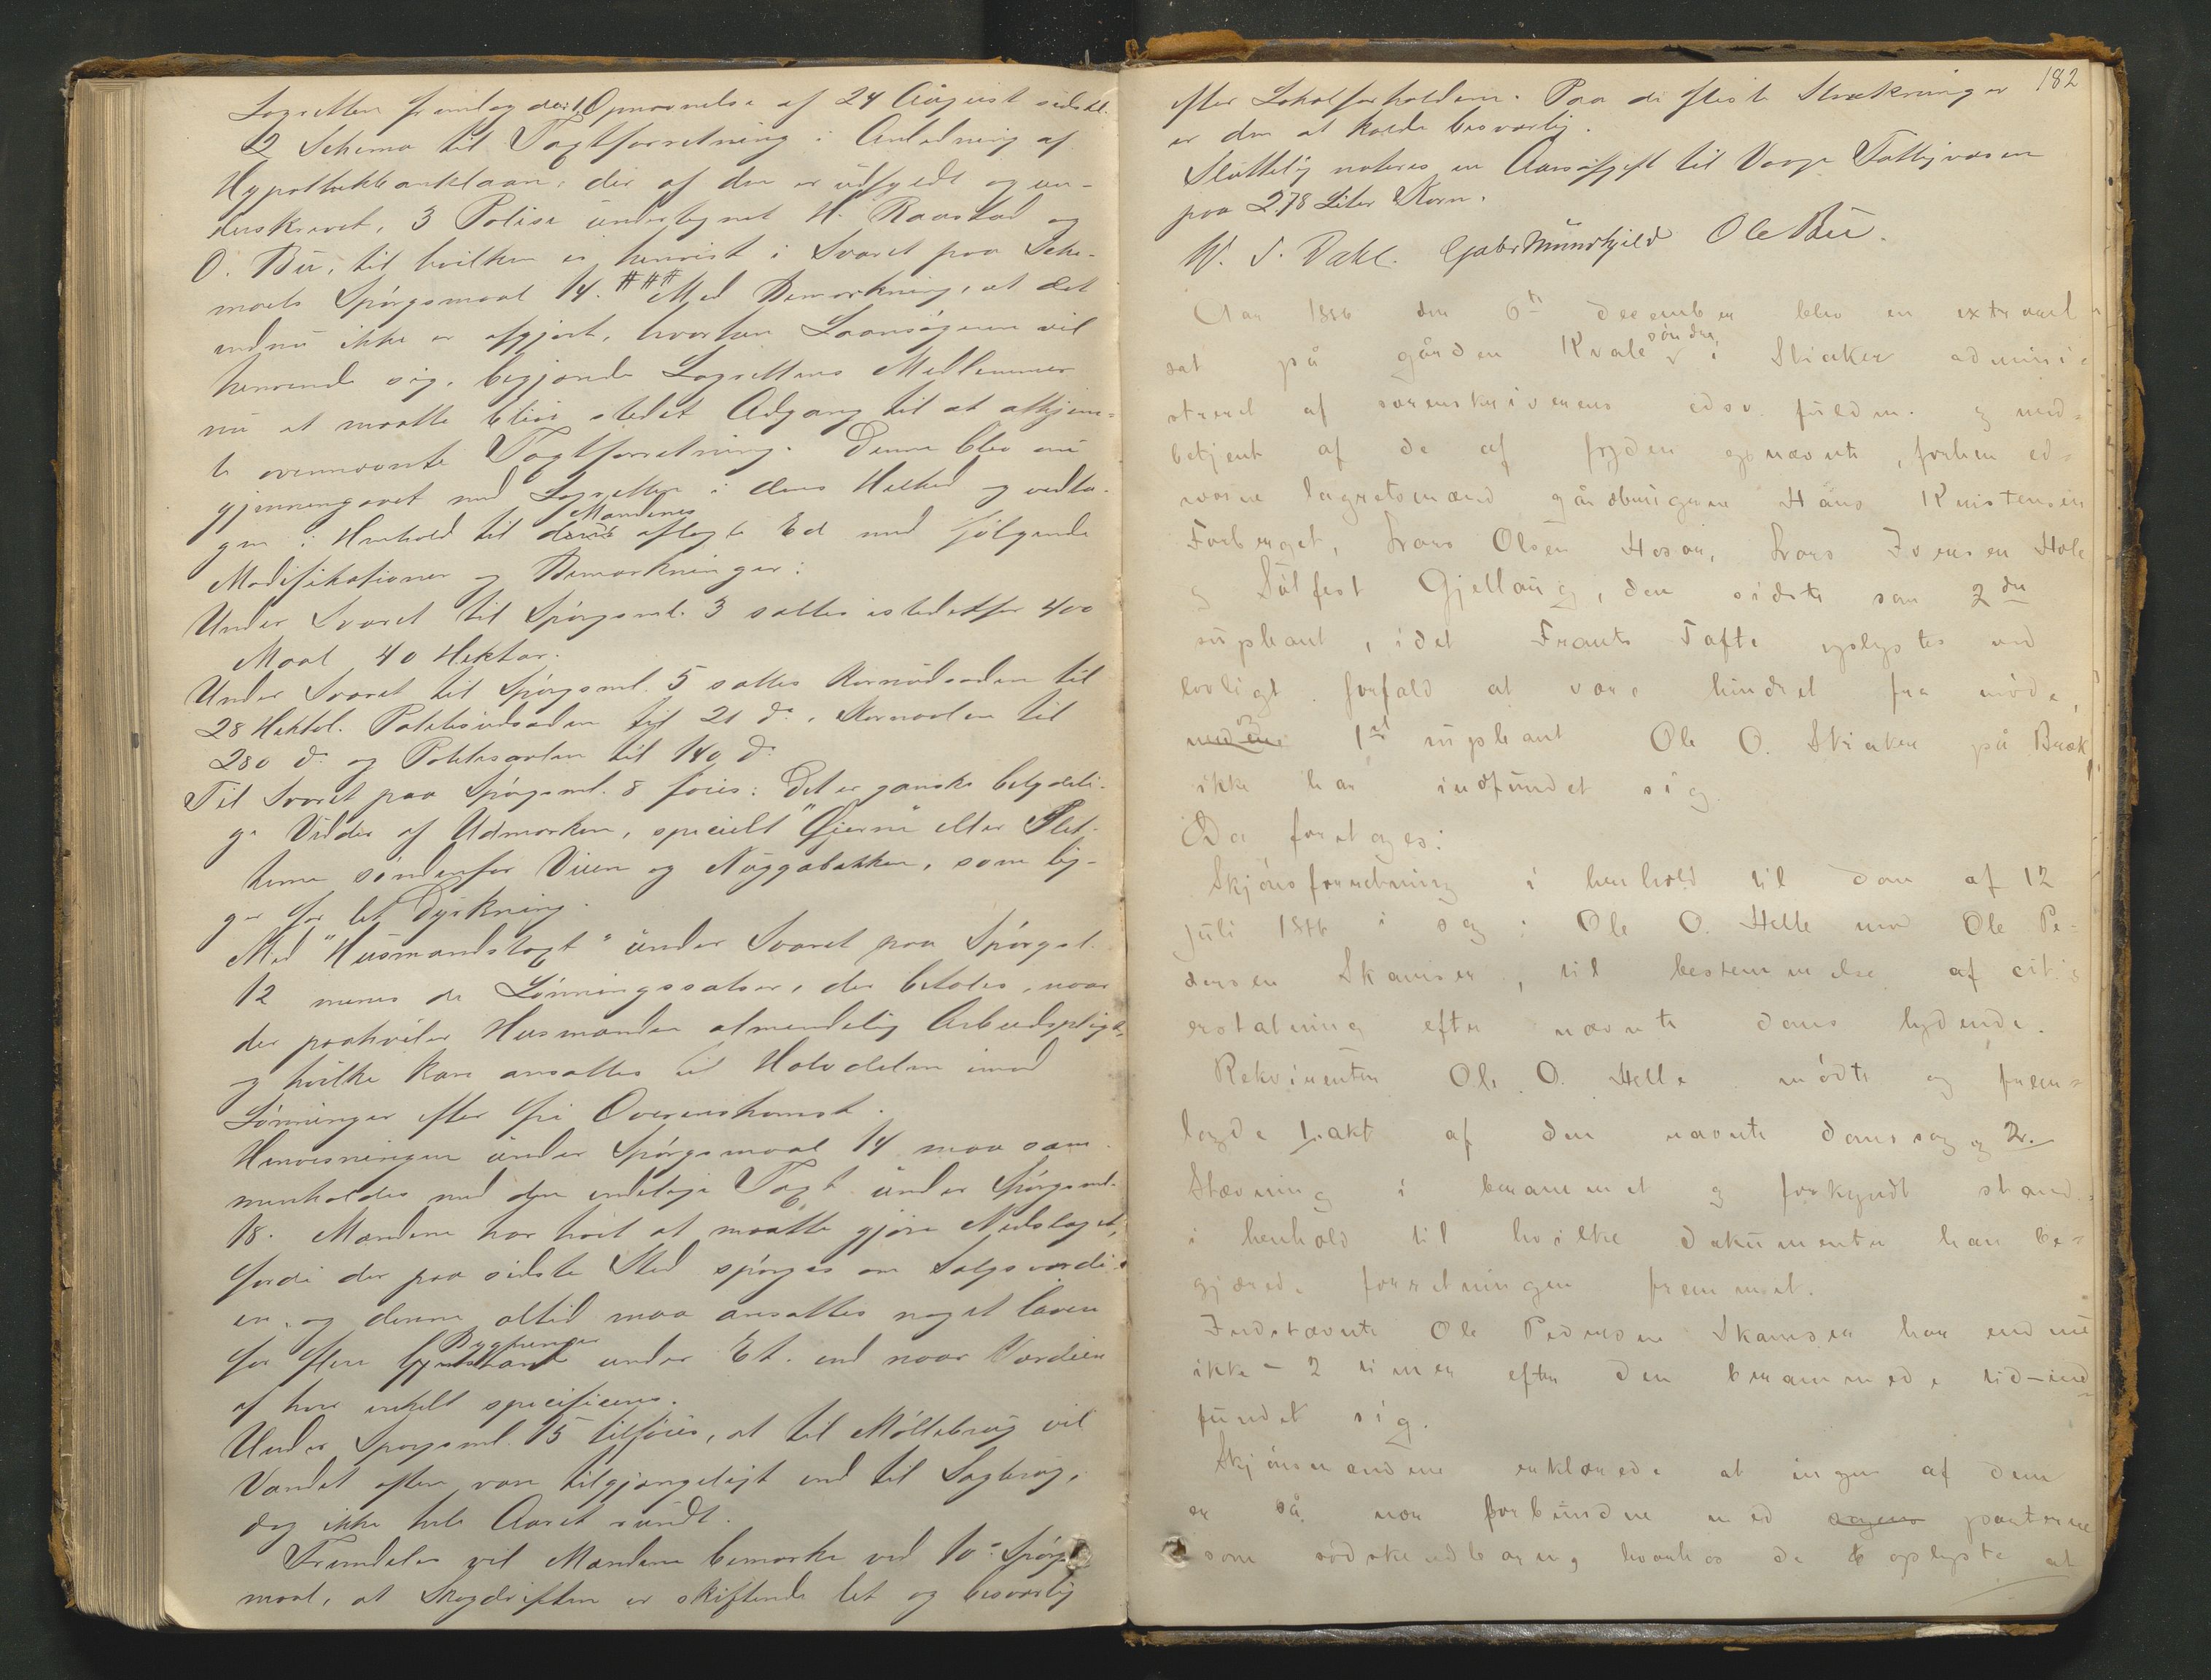 Lagretten fremlagde 1 Opnævnelse af 24 August sidstl.
2 Schema til Taxtforretning i Anledning af
Hypothekbanklaan, der af den er udfyldt og un-
derskrevet, 3 Police undertegnet H. Raastad og
O. Bu, til hvilken er henvist i Svaret paa Sche-
maets Spörgsmaal 14. Med Bemærkning, at det
endnu ikke er afgjort, hvorhen Laansögeren vil
henvende sig, begjærede Lagrettens Medlemmer
nu at maatte blive stedet Adgang til at afhjem-
le ovennævnte Taxtforretning. Denne blev nu
gjennemgaaet med Lagretten i dens Helhed og vedta-
gen i Henhold til Mændenes aflagte Ed med fölgende
Modifikationer og Bemærkninger:
Under Svaret til Spörgsml. 3 sættes istedetfor 400
Maal 40 Hektar.
Under Svaret til Spörgsml. 5 sættes Kornudsæden til
28 Hektol. Potetesudsæden til 21 do, Kornavlen til
280 do og Potetesavlen til 140 do
Til Svaret paa Spörgsml. 8 föies: Det er ganske betydeli-
ge Vidder af Udmarken, specielt "Gjerne" eller Slet-
terne söndenfor Veien og Noggabakken, som lig-
ger for let Dyrkning.
Med "Husmandstaxt" under Svaret paa Spörgsl.
12 menes de Lönningssatser, der betales, naar
der paahviler Husmanden almindelig Arbeidspligt,
og hvilke kan ansættes til Halvdelen imod
Lönninger efter fri Overenskomst.
Henvisningen under Spörgsmaal 14 maa sam-
menholdes med den endelige Taxt under Spörgsml.
18. Mændene har troet at maatte gjöre Nedslaget,
fordi der paa sidste Sted spörges om Salgsværdi-
en, og denne altid maa ansættes noget lavere
for flere Bygninger under Et, end naar Værdien
af hver enkelt specificeres.
Under Spörgsml. 15 tilföies, at til Möllebrug vil
Vandet oftere være tilgjængeligt end til Sagbrug,
dog ikke hele Aaret rundt.
Fremdeles vil Mændene bemærke ved 10de Spörgs-
maal, at Skogdriften er skiftende let og besværlig
182
efter Lokalforholdene. Paa de fleste Strækninger
er den at kalde besværlig.
Sluttelig noteres en Aarsafgift til Vaage Fattigvæsen
paa 278 Liter Korn.
W. S. Dahl. Ole Bu.
Aar 1886 den 6te december blev en extraret
sat på gården Kvale söndre i Skiaker admini-
streret af sorenskriverens edsv. fuldm. og med-
betjent af de af fogden opnævnte, forhen ed-
svorne lagretsmænd gårdbrugerne Hans Kristensen
Forberget, Lars Olsen Hosar, Lars Iversen Hole
og Sölfest Gjellaug, den sidste som 2den
supleant, idet Frants Tafte oplystes ved
lovligt forfald at være hindret fra möde,
og 1st supleant Ole O. Skiaker på Bræk
ikke har indfundet sig.
Da foretoges:
Skjönsforretning i henhold til dom af 12
juli 1886 i sag: Ole O. Helle mod Ole Pe-
dersen Skamsar, til bestemmelse af
erstatning efter nævnte doms lydende.
Rekvirenten Ole O. Helle mödte og frem-
lagde 1. akt af den nævnte domssag og 2.
Stævning i berammet og forkyndt stand
i henhold til hvilke dokumenter han be-
gjærede forretningen fremmet.
Indstævnte Ole Pedersen Skamsar har endnu
ikke – 2 timer efter den berammede tid – ind-
fundet sig.
Skjönsmændene erklærede at ingen af dem
er så nær forbundne med parterne
som hvorhos de oplyste at